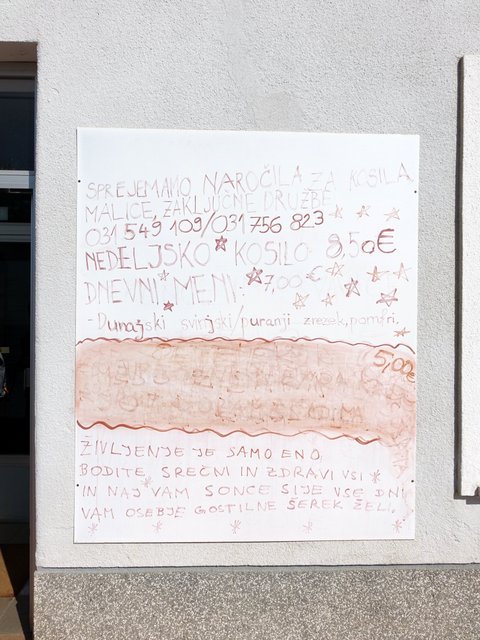 SPREJEMAMO NAROČILA ZA KOSILA,
MALICE, ZAKLJUČNE DRUŽBE
031 549 109/031 756 823
NEDELJSKO KOSILO 8,50€
DNEVNI MENI: 7,00€
- Dunajski svinjski/puranji zrezek, pomfri,
5,00€
ŽIVLJENJE JE SAMO ENO,
BODITE SREČNI IN ZDRAVI VSI
IN NAJ VAM SONCE SIJE VSE DNI
VAM OSEBJE GOSTILNE ŠEREK ŽELI.